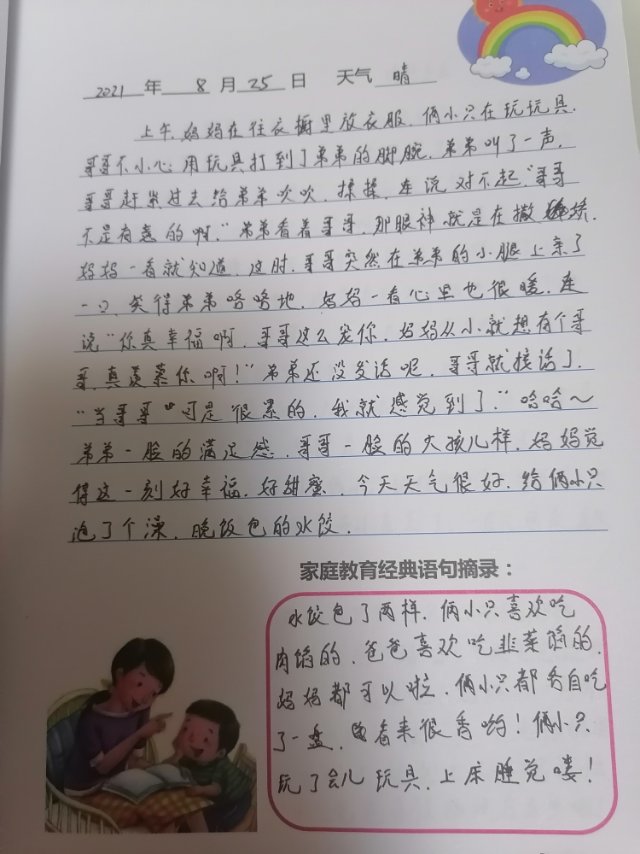 2021 年 8 月 25 日 天气 晴
上午,妈妈在往衣橱里放衣服,俩小只在玩玩具,
哥哥不小心用玩具打到了弟弟的脚腕,弟弟叫了一声,
哥哥赶紧过去给弟弟吹吹,揉揉,连说对不起“哥哥
不是有意的啊,”弟弟看着哥哥,那眼神就是在撒娇,
妈妈一看就知道,这时,哥哥突然在弟弟的小腿上亲了
一口,笑得弟弟咯咯地,妈妈一看心里也很暖,连
说“你真幸福啊,哥哥这么宠你,妈妈从小就想有个哥
哥,真羡慕你啊!”弟弟还没发话呢,哥哥就接话了,
“当哥哥可是很累的,我就感觉到了,”哈哈~
弟弟一脸的满足感,哥哥一脸的大孩儿样,妈妈觉
得这一刻好幸福,好甜蜜,今天天气很好,给俩小只
泡了个澡,晚饭包的水饺,
家庭教育经典语句摘录:
水饺包了两样,俩小只喜欢吃
肉馅的,爸爸喜欢吃韭菜馅的,
妈妈都可以啦,俩小只都各自吃
了一盘,看来很香哟!俩小只
玩了会儿玩具,上床睡觉喽!